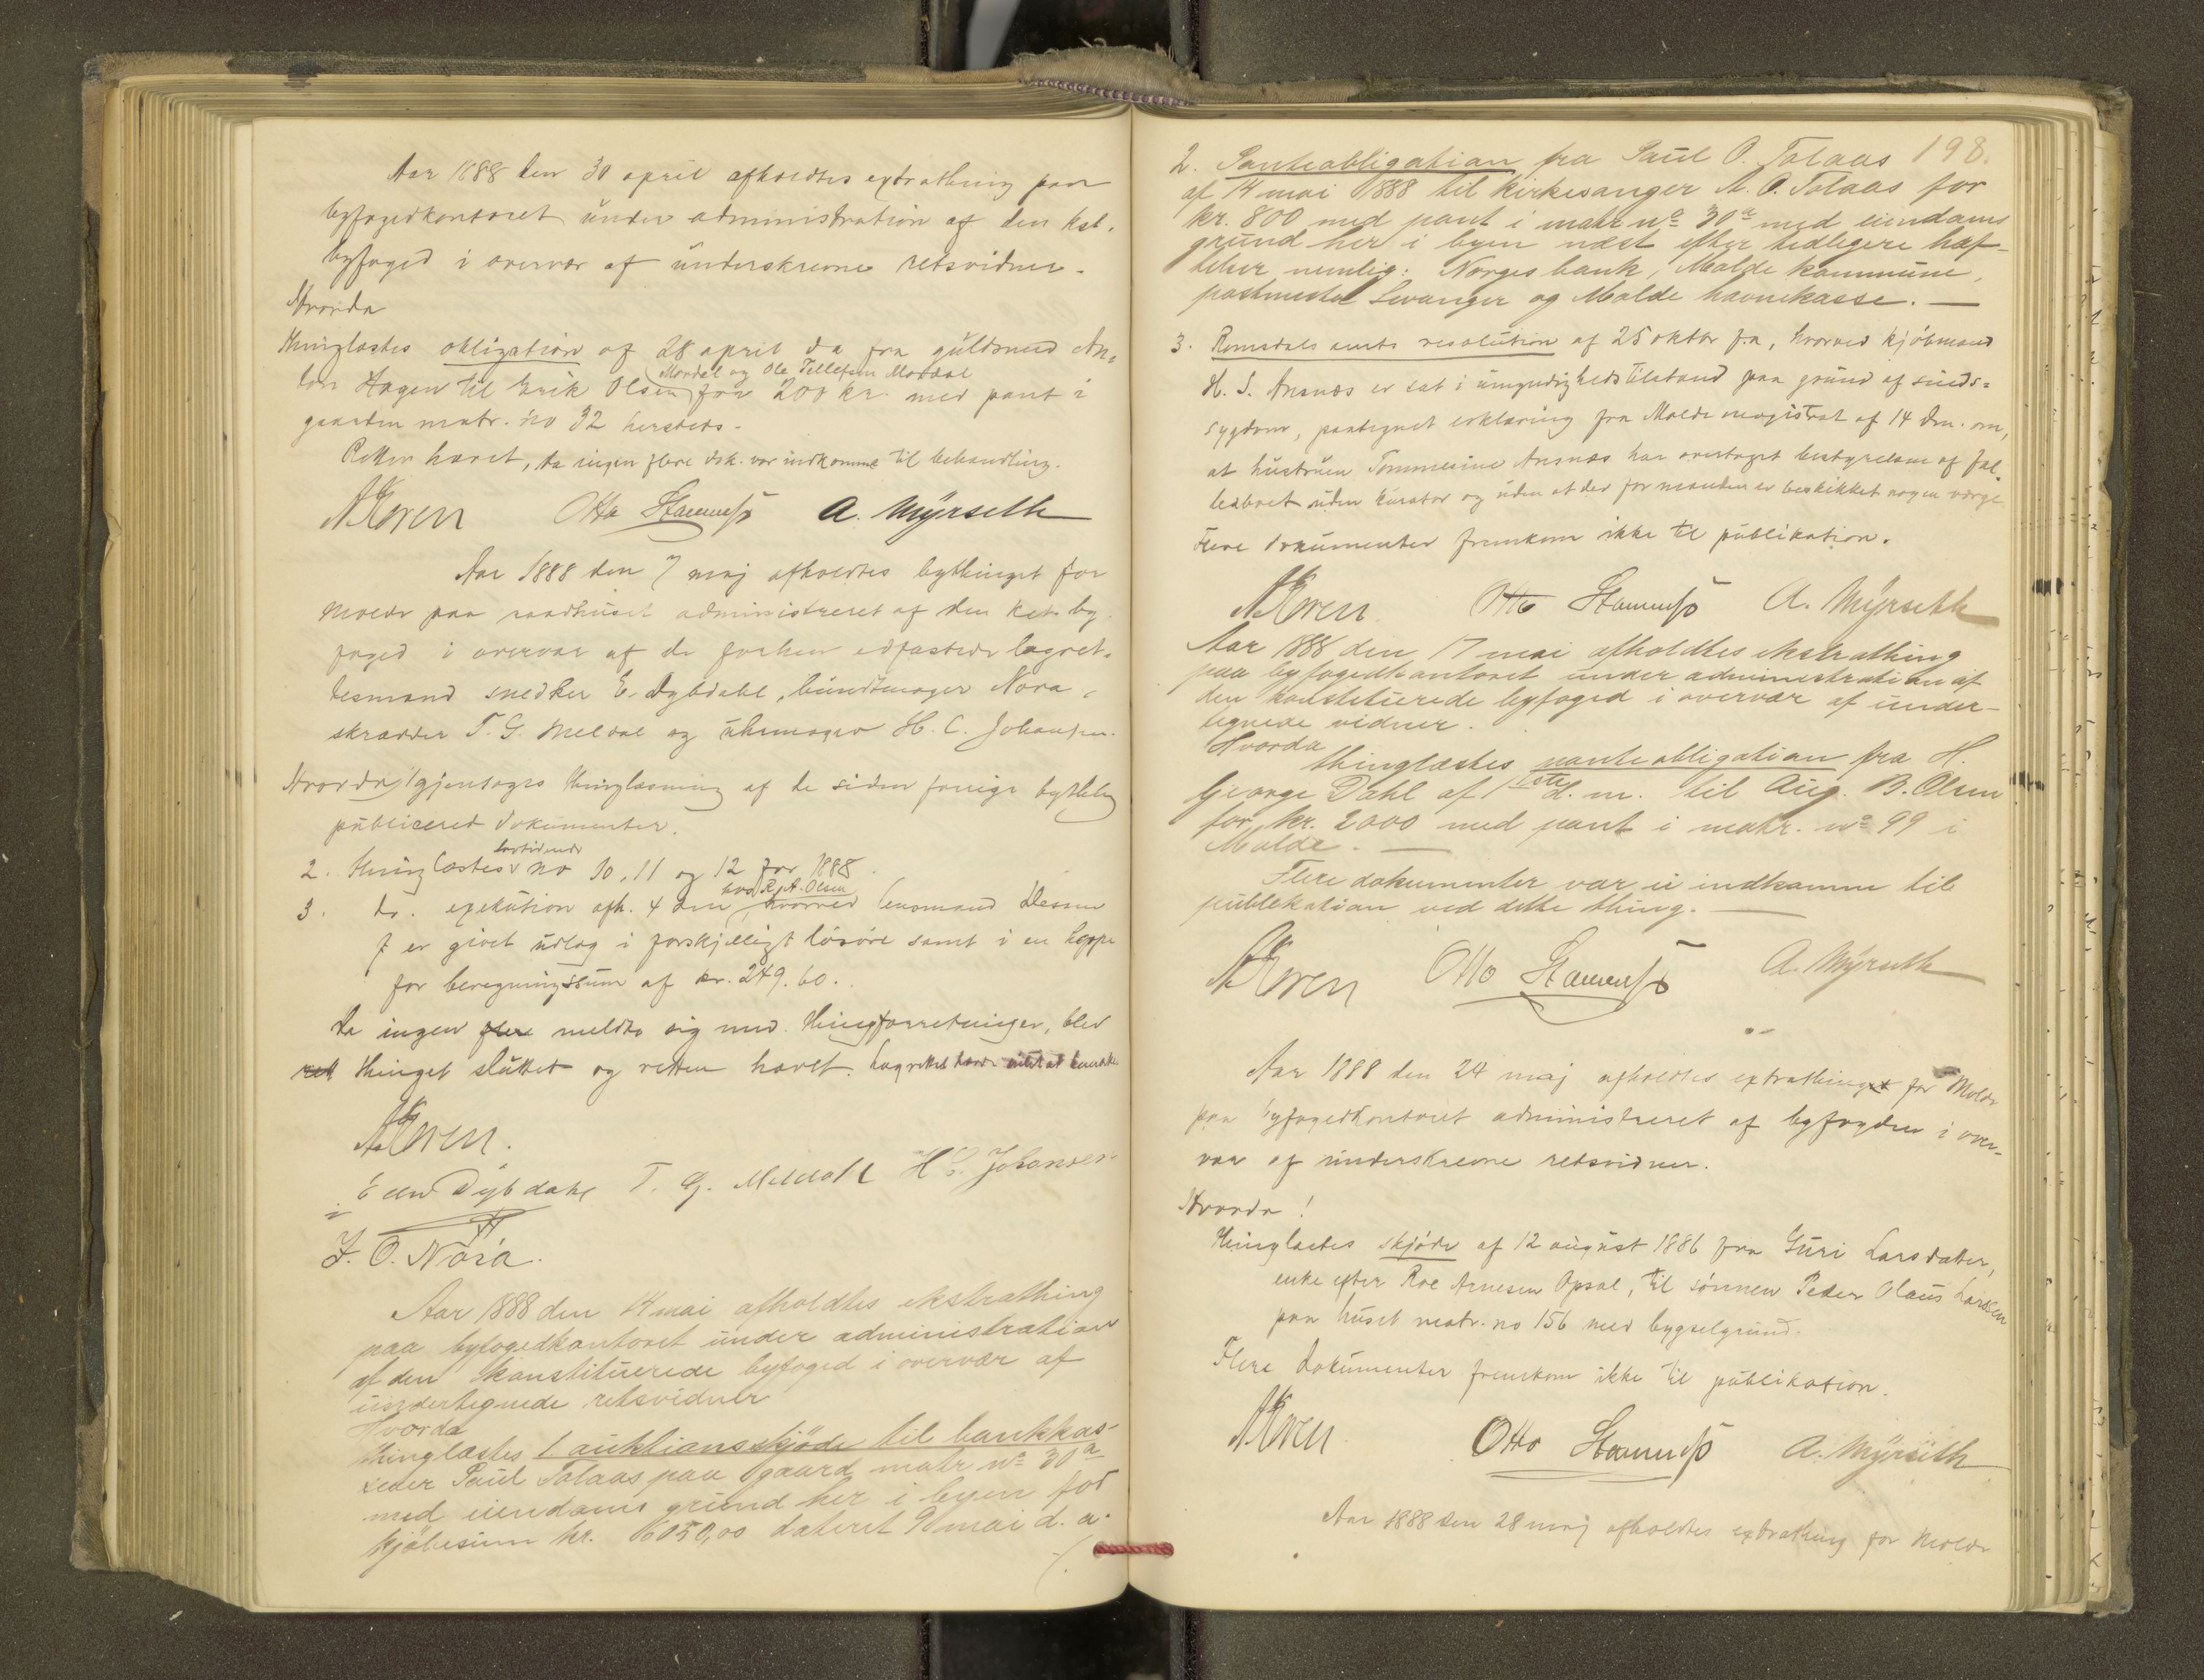 Aar 1888 den 30 april afholdtes extrathing paa
byfogedkontoret under administration af den kst.
byfoged i overvær af underskrevne retsvidner.
Hvorda
thinglæstes obligation af 28 april d.a. fra guldsmed An-
ton Hagen til Erik Olsen Mordal og Ole Tellefsen Mordal for 200 kr. med pant i
gaarden matr. no 32 hersteds.
Retten hævet, da ingen flere dok. var indkomne til behandling.
N Koren Otto Stamnesø A. Myrseth
Aar 1888 den 7 maj afholdtes bythinget for
Molde paa raadhuset administreret af den kst. by-
foged i overvær af de forhen edfæstede lagret-
tesmænd snedker E. Dybdahl, bundtmager Nora,
skrædder T. G. Meldal og uhrmager H. C. Johansen.
Hvorda 1 gjentoges thinglæsning af de siden forrige bything
publicered dokumenter.
2. thinglæstes lovtidende no 10, 11 og 12 for 1888.
3. do. exekution afh. 4 den hos R. A. Olsen hvorved lensmand Dessen
er givet udlæg i forskjelligt løsøre samt i en
for beregningssum af kr. 249.60.
Da ingen flere meldte sig med thingforretninger, blev
ret thinget sluttet og retten hævet. Lagrettet havde intet at bemærke
N Koren.
Edw Dybdahl T. G. Meldahl H C. Johansen
J. O. Nora.
Aar 1888 den 14 mai afholdtes ekstrathing
paa byfogedkontoret under administration
af den konstituerede byfoged i overvær af
undertegnede retsvidner
Hvorda
thinglæstes 1 auktionsskjøde til bankkas-
serer Paul Tolaas paa gaard matr. no 30a
med eiendoms grund her i byen for
kjøbesum kr. 6050,00 dateret 9 mai d. a.
198.
2. Panteobligation fra Paul O. Tolaas
af 14 mai 1888 til kirkesanger A. O. Tolaas for
kr. 800 med pant i matr no 30a med eiendoms
grund her i byen næst efter tidligere hæf-
telser nemlig: Norges bank, Molde kommune,
postmester Levanger og Molde havnekasse. —
3. Romsdals amts resolution af 25 oktbr f.a., hvorved kjøbmand
H. S. Ansnæs er sat i umyndighedstilstand paa grund af sinds-
sygdom, paategnet erklæring fra Molde magistrat af 14 dm. om,
at hustruen Tommesine Ansnæs har overtaget bestyrelsen af fæl-
lesboet uden kurator og uden at der for manden er beskikket nogen værge
Flere dokumenter fremkom ikke til publikation.
N Koren Otto Stamnesø A. Myrseth
Aar 1888 den 17 mai afholdtes ekstrathing
paa byfogedkontoret under administration af
den konstituerede byfoged i overvær af under-
tegnede vidner.
Hvorda
thinglæstes panteobligation fra H.
George Dahl af 1ste d. m. til Aug. B. Olsen
for kr. 2000 med pant i matr. no 99 i
Molde. —
Flere dokumenter var ei indkomne til
publikation ved dette thing. —
N Koren Otto Stamnesø A. Myrseth
Aar 1888 den 24 maj afholdtes extrathinget for Molde
paa byfogedkontoret administreret af byfogden i over-
vær af underskrevne retsvidner.
Hvorda!
Thinglæstes skjøde af 12 august 1886 fra Guri Larsdatter,
enke efter Roe Arnesen Opsal, til sønnen Peder Olaus Larsen
paa huset matr. no 156 med bygselgrund.
Flere dokumenter fremkom ikke til publikation.
N Koren Otto Stamnesø A. Myrseth
Aar 1888 den 28 maj afholdtes extrathing for Molde